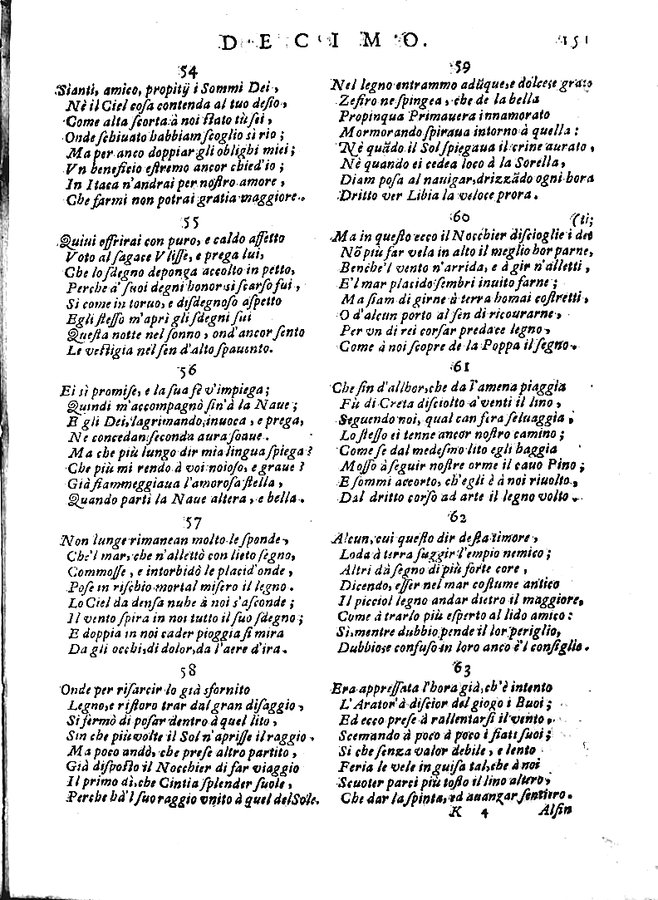 DECIMO. 151
54
Sianti, amico, propitij i Sommi Dei,
Nè il Ciel cosa contenda al tuo desio,
Come alta scorta à noi stato tù sei,
Onde schiuato habbiam scoglio sì rio;
Ma per anco doppiar gli oblighi miei;
Vn beneficio estremo ancor chied'io;
In Itaca n'andrai per nostro amore,
Che farmi non potrai gratia maggiore.
55
Quiui offrirai con puro, e caldo affetto
Voto al sagace Vlisse, e prega lui,
Che lo sdegno deponga accolto in petto,
Perche a' suoi degni honor si scarso fui,
Si come in toruo, e disdegnoso aspetto
Egli stesso m'aprì gli sdegni sui
Questa notte nel sonno, ond'ancor sento
Le vestigia nel sen d'alto spauento.
56
Ei sì promise, e la sua fè v'impiega;
Quindi m'accompagnò sin'à la Naue;
E gli Dei, lagrimando, inuoca, e prega,
Ne concedan seconda aura soaue.
Ma che più lungo dir mia lingua spiega?
Che più mi rendo à voi noioso, e graue?
Già fiammeggiaua l'amorosa stella,
Quando partì la Naue altera, e bella.
57
Non lunge rimanean molto le sponde,
Che'l mar, che n'allettò con lieto segno,
Commosse, e intorbidò le placid'onde,
Pose in rischio mortal misero il legno.
Lo Ciel da densa nube à noi s'asconde;
Il vento spira in noi tutto il suo sdegno;
E doppia in noi cader pioggia si mira
Da gli occhi, di dolor, da l'aere d'ira.
58
Onde per risarcir lo già sfornito
Legno, e ristoro trar dal gran disaggio,
Si fermò di posar dentro à quel lito,
Sin che più volte il Sol n'aprisse il raggio.
Ma poco andò, che prese altro partito,
Già disposto il Nocchier di far viaggio
Il primo dì, che Cintia splender suole,
Perche hà'l suo raggio vnito à quel del Sole.
59
Nel legno entrammo adũque, e dolce, e grato
Zefiro ne spingea, che de la bella
Propinqua Primauera innamorato
Mormorando spiraua intorno à quella:
Nè quãdo il Sol spiegaua il crine aurato,
Nè quando ei cedea loco à la Sorella,
Diam posa al nauigar, drizzãdo ogni hora
Dritto ver Libia la veloce prora.
60
(ti;
Ma in questo ecco il Nocchier discioglie i det
Nõ più far vela in alto il meglio hor parne,
Benche'l vento n'arrida, e à gir n'alletti,
E'l mar placido sembri inuito farne;
Ma siam di girne à terra homai costretti,
O d'alcun porto al sen di ricourarne,
Per vn di rei corsar predace legno,
Come à noi scopre de la Poppa il segno.
61
Che sin d'allhor, che da l'amena piaggia
Fù di Creta disciolto a'venti il lino,
Seguendo noi, qual can fera seluaggia,
Lo stesso ei tenne ancor nostro camino;
Come se dal medesmo lito egli haggia
Mosso à seguir nostre orme il cauo Pino;
E sommi accorto, ch'egli è à noi riuolto,
Dal dritto corso ad arte il legno volto.
62
Alcun, cui questo dir desta timore,
Loda à terra fuggir l'empio nemico;
Altri dà segno di più forte core,
Dicendo, esser nel mar costume antico
Il picciol legno andar dietro il maggiore,
Come à trarlo più esperto al lido amico:
Sì, mentre dubbio pende il lor periglio,
Dubbioso e confuso in loro anco è'l consiglio.
63
Era appressata l'hora già, ch'è intento
L'Arator'à discior del giogo i Buoi;
Ed ecco prese à rallentarsi il vento,
Scemando à poco à poco i fiati suoi;
Si che senza valor debile, e lento
Feria le vele in guisa tal, che à noi
Scuoter parci più tosto il lino altero,
Che dar la spinta, ed auanzar sentiero.
K 4 Alfin